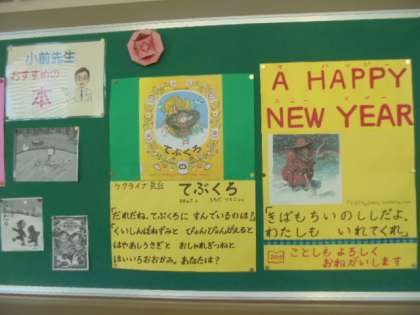 小前先生
おすすめの
本
てぶくろ
ウクライナ民話
てぶくろ
「だれだね、てぶくろに すんでいるのは？」
「くいしんぼねずみと ぴょんぴょんがえると
はやあしうさぎと おしゃれぎつねと
はいいろおおかみ。あなたは？」
A HAPPY
NEW YEAR
「きばもちいのししだよ。
わたしも いれてくれ。」
ことしも よろしく
おねがいします